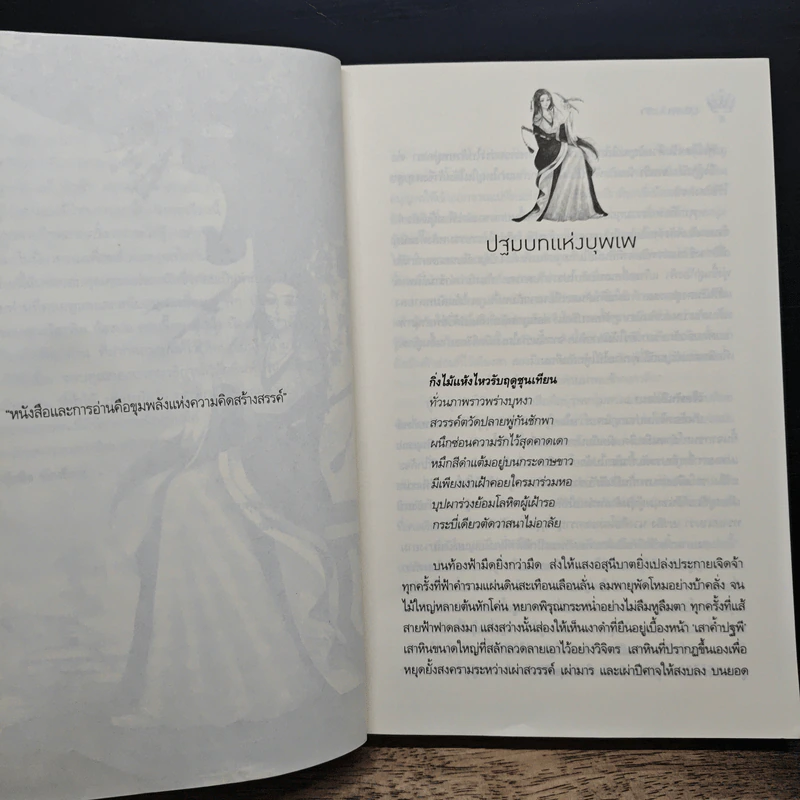 "หนังสือและการอ่านคือขุมพลังแห่งความคิดสร้างสรรค์"
ปฐมบทแห่งบุพเพ
กิ่งไม้แห้งไหวรับฤดูชุนเทียน
ทั่วนภาพราวพร่างบุหงา
สวรรค์ตวัดปลายพู่กันชักพา
ผนึกซ่อนความรักไว้สุดคาดเดา
หมึกสีดำแต้มอยู่บนกระดาษขาว
มีเพียงเงาเฝ้าคอยใครมาร่วมหอ
บุปผาร่วงย้อมโลหิตผู้เฝ้ารอ
กระบี่เดียวตัดวาสนาไม่อาลัย
บนท้องฟ้ามืดยิ่งกว่ามืด ส่งให้แสงอสุนีบาตยิ่งเปล่งประกายเจิดจ้า
ทุกครั้งที่ฟ้าคำรามแผ่นดินสะเทือนเลือนลั่น ลมพายุพัดโหมอย่างบ้าคลั่ง จน
ไม้ใหญ่หลายต้นหักโค่น หยาดพิรุณกระหน่ำอย่างไม่ลืมหูลืมตา ทุกครั้งที่แส้
สายฟ้าฟาดลงมา แสงสว่างนั้นส่องให้เห็นเงาดำที่ยืนอยู่เบื้องหน้า 'เสาค้ำปฐพี'
เสาหินขนาดใหญ่ที่สลักลวดลายเอาไว้อย่างวิจิตร เสาหินที่ปรากฏขึ้นเองเพื่อ
หยุดยั้งสงครามระหว่างเผ่าสวรรค์ เผ่ามาร และเผ่าปีศาจให้สงบลง บนยอด